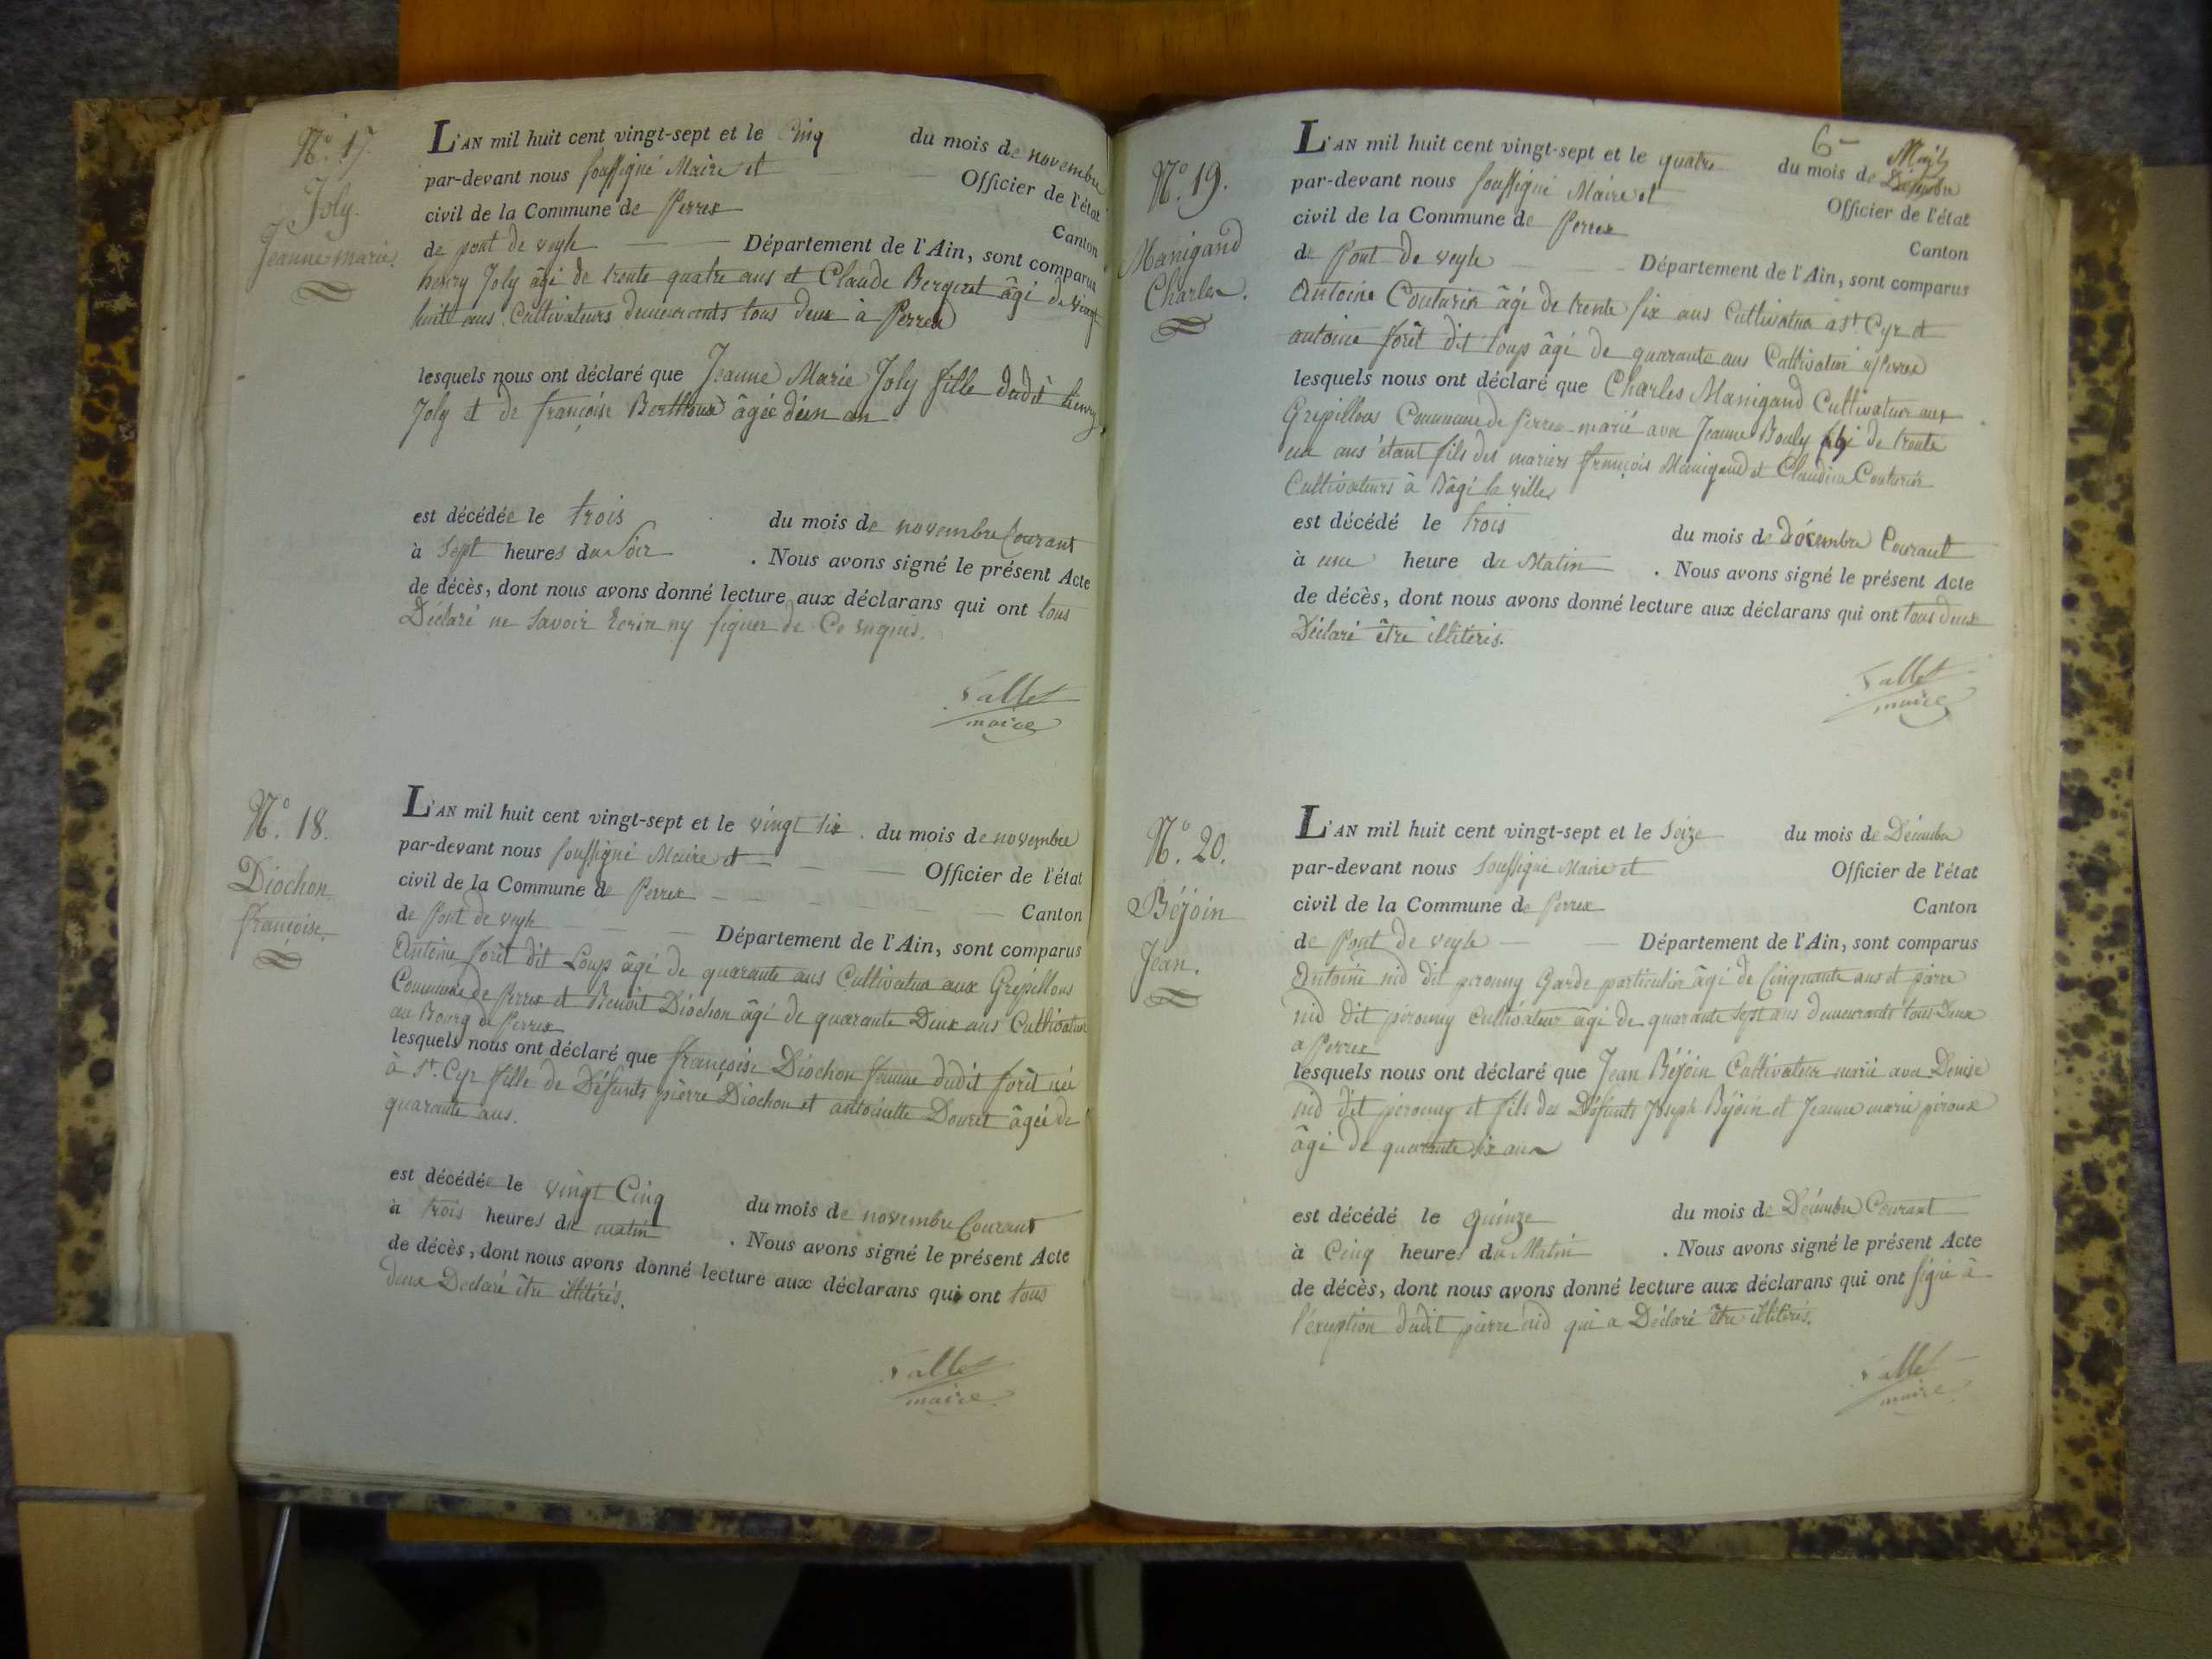 N.° 17.
Joly.
Jeanne marie.
L'AN mil huit cent vingt-sept et le Cinq du mois de novembre
par-devant nous soussigné Maire et Officier de l'état
civil de la Commune de Perrex Canton
de pont de veyle Département de l'Ain, sont comparus
henry Joly âgé de trente quatre ans et Claude Bergeret âgé de vingt
huit ans Cultivateurs demeurants tous deux à Perrex
lesquels nous ont déclaré que Jeanne Marie Joly fille dudit henry
Joly et de françoise âgée d'un an
est décédée le trois du mois de novembre Courant
à sept heures du Soir . Nous avons signé le présent Acte
de décès, dont nous avons donné lecture aux déclarans qui ont tous
Déclaré ne Savoir Ecrire ny signer de Ce enquis.
maire
N.° 18.
Diochon
françoise.
L'AN mil huit cent vingt-sept et le vingt six du mois de novembre
par-devant nous soussigné Maire et Officier de l'état
civil de la Commune de Perrex Canton
de Pont de veyle Département de l'Ain, sont comparus
Antoine forêt dit Loup âgé de quarante ans Cultivateur aux Grépillons
Commune de Perrex et Benoit Diochon âgé de quarante Deux ans Cultivateur
au Bourg de Perrex
lesquels nous ont déclaré que françoise Diochon femme dudit forêt née
à St. Cyr fille de Défunts pierre Diochon et antoinette Douret âgée de
quarante ans.
est décédée le vingt Cinq du mois de novembre Courant
à trois heures du matin . Nous avons signé le présent Acte
de décès, dont nous avons donné lecture aux déclarans qui ont tous
deux Declaré être illitérés.
maire
6
N.° 19.
Manigand
Charles.
L'AN mil huit cent vingt-sept et le quatre du mois de Décembre
par-devant nous soussigné Maire et Officier de l'état
civil de la Commune de Perrex Canton
de Pont de veyle Département de l'Ain, sont comparus
Antoine Couturier âgé de trente six ans Cultivateur a St. Cyr et
antoine forêt dit loup âgé de quarante ans Cultivateur à Perrex
lesquels nous ont déclaré que Charles Manigand Cultivateur aux
Grépillons Commune de Perrex marié avec Jeanne Bouly âgé de trente
un ans étant fils des mariers françois Manigand et Claudine Couturier
Cultivateurs à Bâgé la ville
est décédé le trois du mois de décembre Courant
à une heure du Matin . Nous avons signé le présent Acte
de décès, dont nous avons donné lecture aux déclarans qui ont tous deux
Déclaré être illitérés.
maire
N.° 20.
Béjoin
Jean.
L'AN mil huit cent vingt-sept et le Seize du mois de Décembre
par-devant nous soussigné Maire et Officier de l'état
civil de la Commune de Perrex Canton
de Pont de veyle Département de l'Ain, sont comparus
Antoine nid dit perouny Garde particulier âgé de Cinquante ans et pierre
nid dit pérouny Cultivateur âgé de quarante Sept ans demeurants tous Deux
a Perrex
lesquels nous ont déclaré que Jean Béjoin Cultivateur marié avec Denise
nid dit pérouny et fils des Défunts Joseph Béjoin et Jeanne marie piroux
âgé de quarante six ans
est décédé le quinze du mois de Décembre Courant
à Cinq heures du Matin . Nous avons signé le présent Acte
de décès, dont nous avons donné lecture aux déclarans qui ont signé à
l'exception dudit pierre nid qui a Déclaré être illitérés.
maire